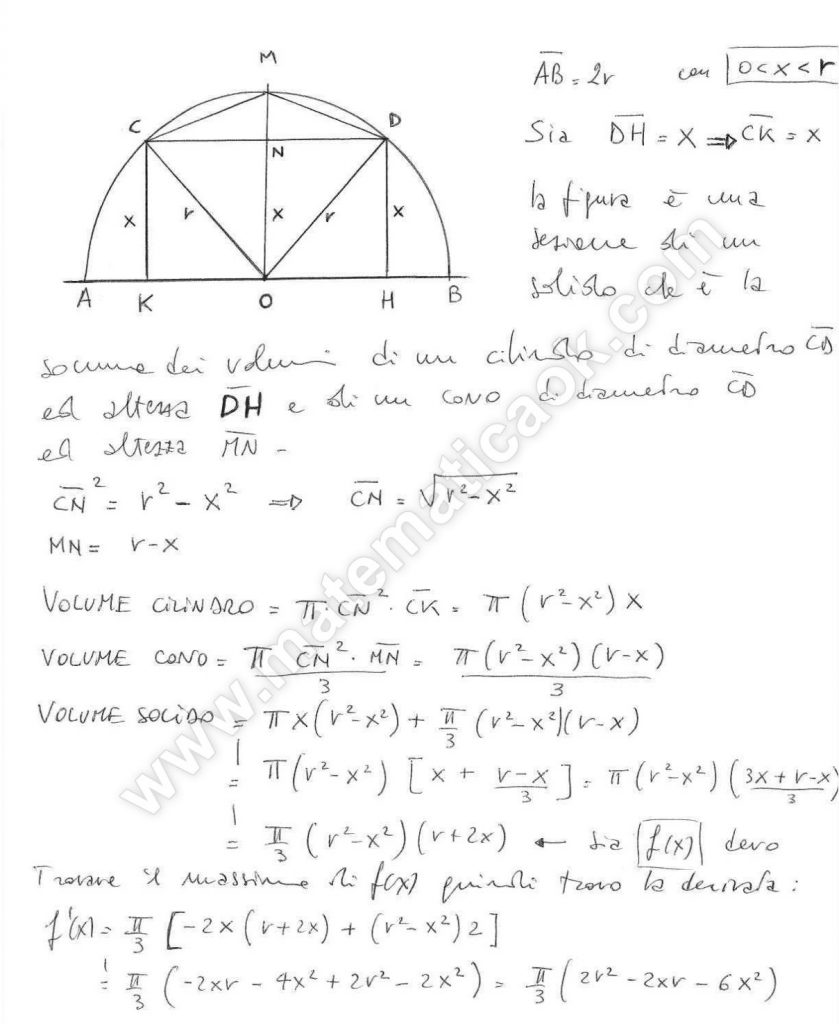 M
C
D
N
x
r
x
r
x
A
K
O
H
B
AB = 2r con 0 < x < r
Sia DH = x ⇒ CK = x
la figura è una
sezione di un
solido che è la
somma dei volumi di un cilindro di diametro CD
ed altezza DH e di un cono di diametro CD
ed altezza MN -
CN² = r² - x² ⇒ CN = √(r²-x²)
MN = r - x
VOLUME CILINDRO = π · CN² · CK = π (r²-x²) x
VOLUME CONO = π CN² · MN / 3 = π (r²-x²) (r-x) / 3
VOLUME SOLIDO = π x (r²-x²) + π/3 (r²-x²)(r-x)
= π (r²-x²) [x + (r-x)/3] = π (r²-x²) ((3x+r-x)/3)
= π/3 (r²-x²) (r+2x) ← sia f(x) devo
Trovare il massimo di f(x) quindi trovo la derivata :
f'(x) = π/3 [-2x (r+2x) + (r²-x²) 2]
= π/3 (-2xr - 4x² + 2r² - 2x²) = π/3 (2r² - 2xr - 6x²)
www.matematicaok.com